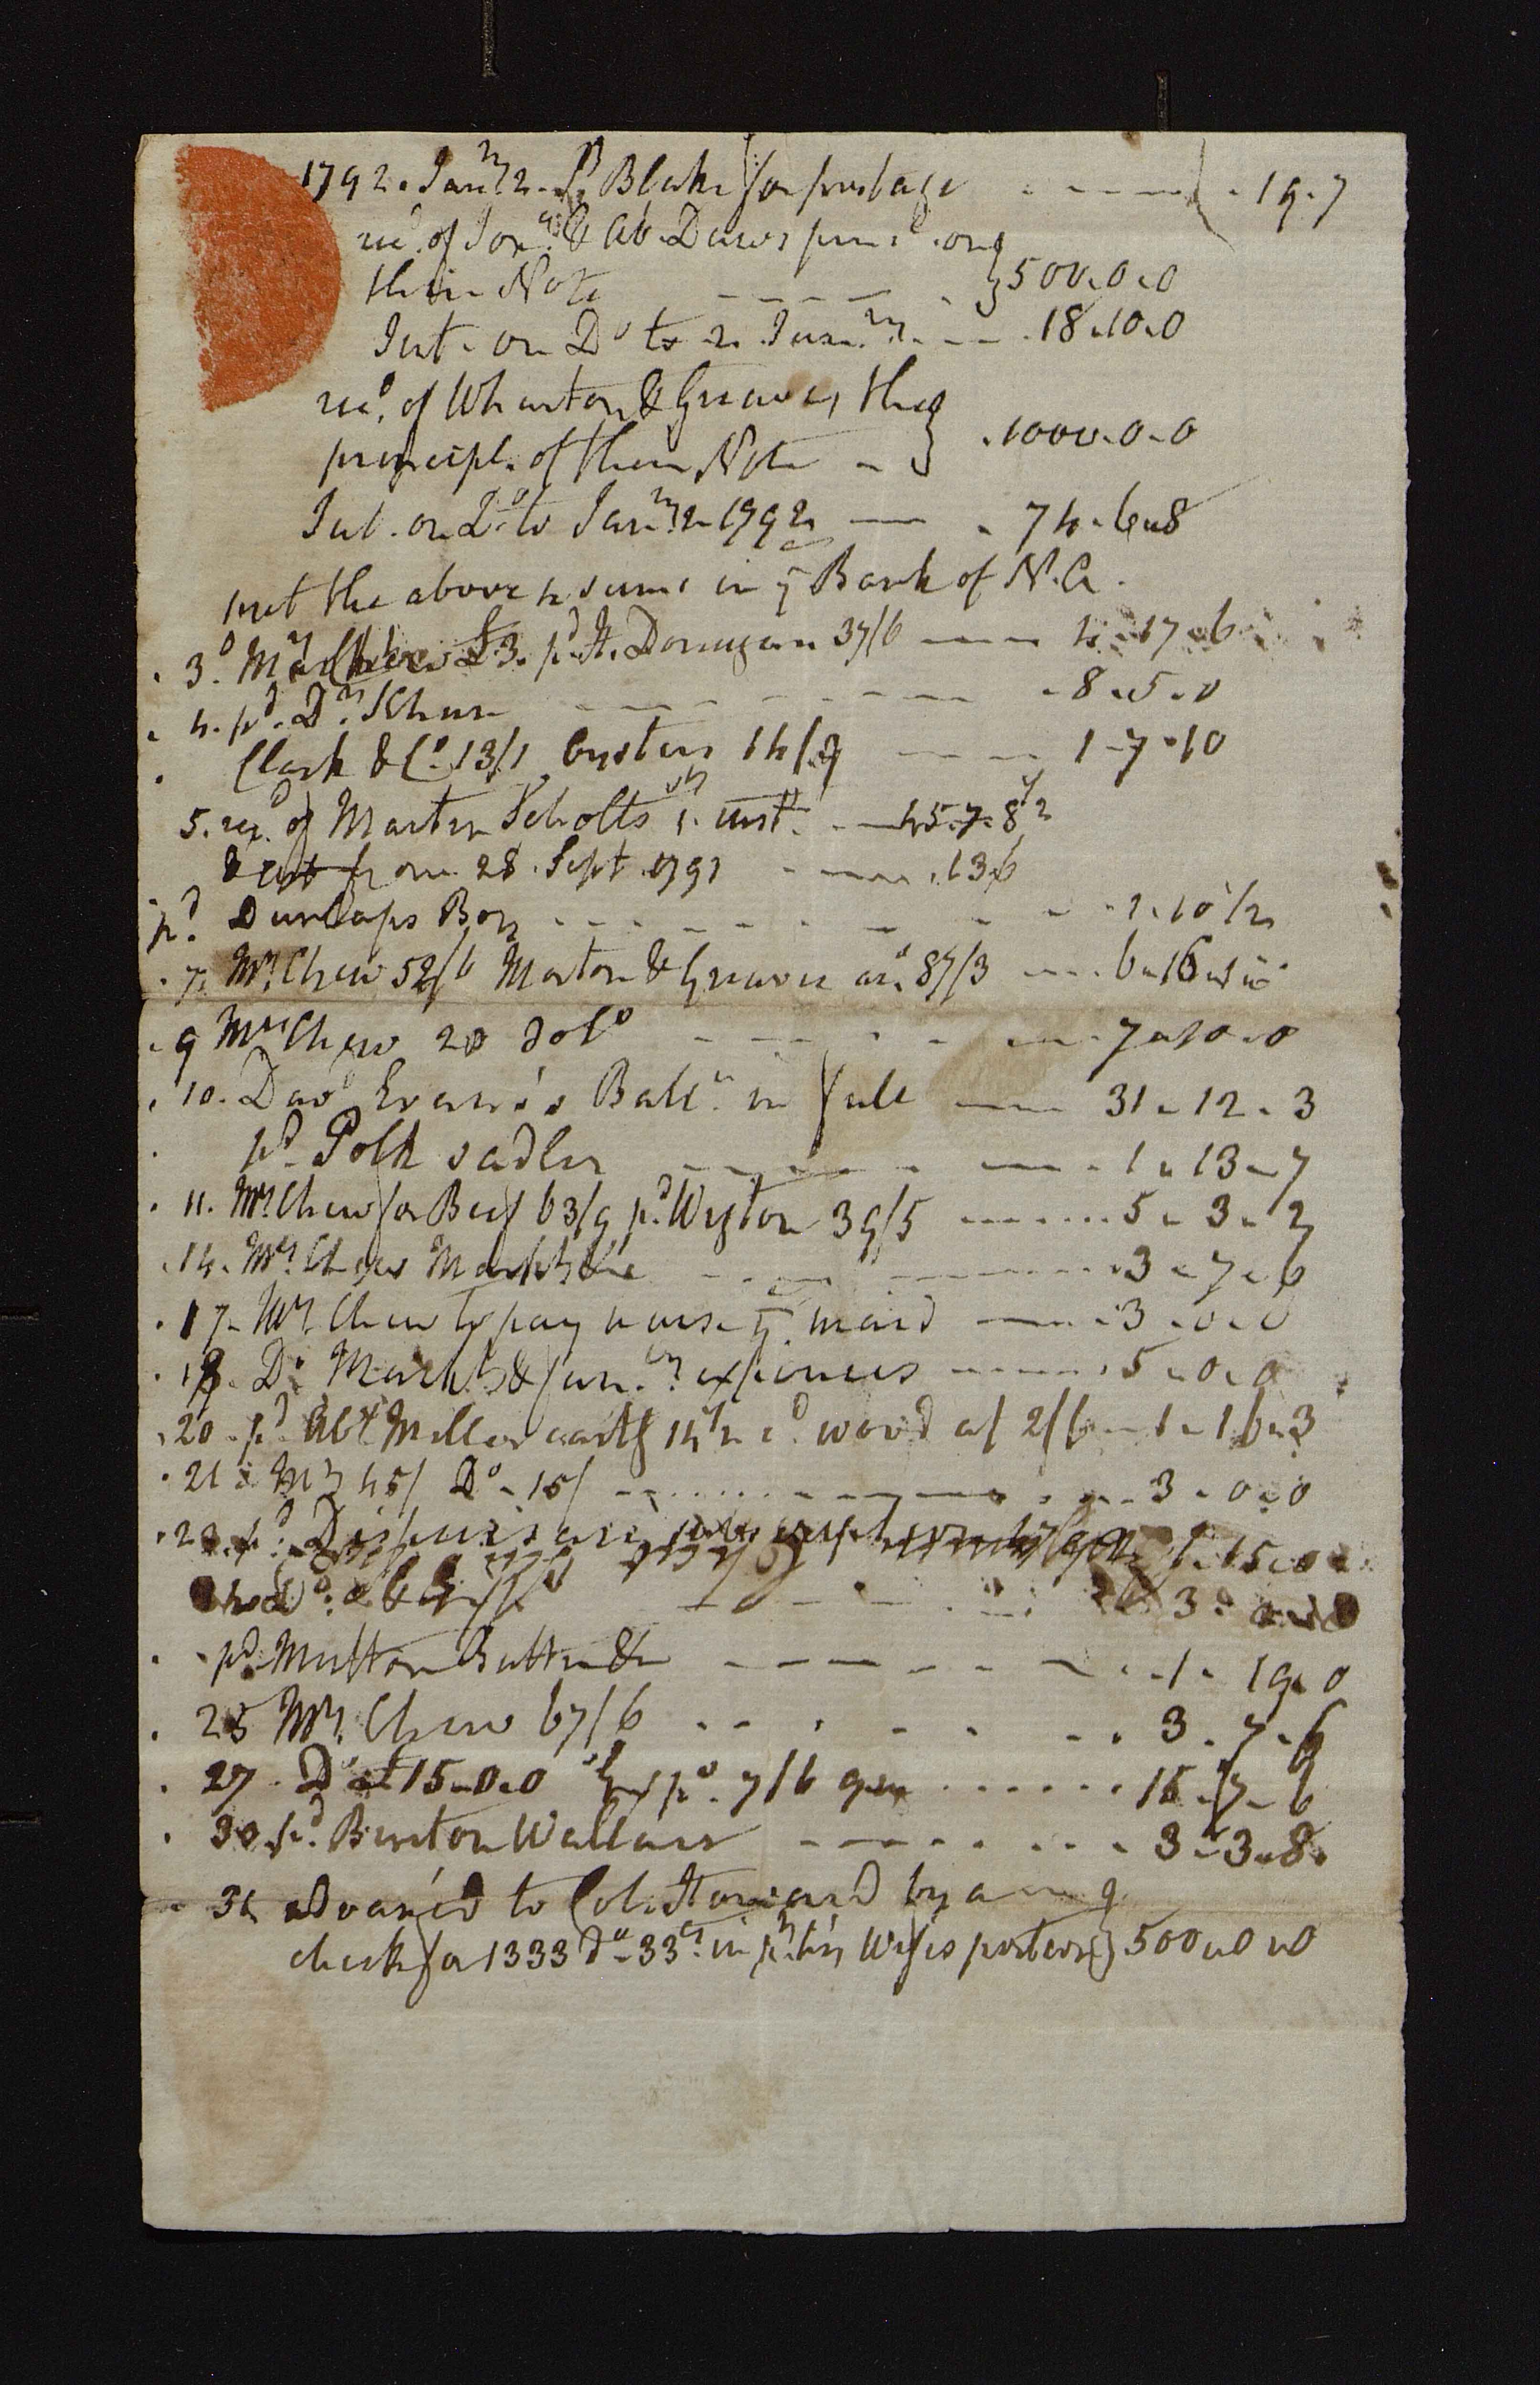 1792. Jan.ry 2. p.d Blake for postage - - - - . 19. 7
rec.d of Jon.a & Ab. Daws princ. on
their Note - - - - - } 500. 0. 0
Int. on D.o to 2 Jan.ry - - - . 18. 10. 0
rec.d of Wharton & Greaves, the
principl. of their Note - } . 1000. 0. 0
Int. on D.o to Jan.ry 2 1792 — . 74. 6. 8
put the above 4 sums in ye Bank of N. A.
. 3.d Mrs Chew £3. p.d H. Donnegan 37/6 — — 4. 17. 6
. 4. p.d D.r Khun - - - - - - . 8. 5. 0
. Clark & Co. 13/1 Oysters 14/9 - - - 1. 7. 10
5. rec.d of Martin Scholts inst. - — 45. 7. 8 1/2
& int from 28. Sept. 1791 - — . 13. 6
p.d Dunlaps Boy - - - - - - - . 2. 10 1/2
. 7. Mrs. Chew 52/6 Morton & Greaves 87/3 — . 6.
. 9 Mrs Chew 20 dol.s - - - - - . 7. 10. 0
. 10. Dav.d Evans's Ball.e in full — 31. 12. 3
. p.d Polk sadler - - - - - - . 1. 13. 7
. 11. Mrs. Chew for Beef 63/9 p.d Wigton 39/5 - - - . 5. 3. 2
. 14. Mrs. Chew Markt &c - - - - - - . 3. 7. 6
. 17. Mrs. Chew to pay nurse ye maid — . 3. 0. 0
. 18. D.o Markt & expences — . 5. 0. 0
. 20. p.d Miller cartg 14 1/2 c.d wood at 2/6 — 1. 16. 3
. 21 Mrs 45/ D.o 15/ - - - - - - - 3. 0. 0
1. 15. 0
3.
. p.d Mutton Butter &c - - - - - - . 1. 19. 0
. 25 Mrs. Chew 67/6 - - - - - - . 3. 7. 6
. 27. D.o £15. 0. 0 p.d 7/6 - - - - - . 15. 7. 6
. 30 p.d Burton Wallace - - - - - - . 3. 3. 8.
- 31 advanc'd to Col. Howard by a
check for 1333 d.s 33 in p.t his Wifes portion } 500. 0. 0